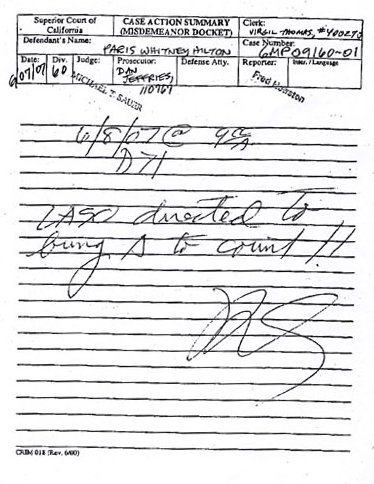 Superior Court of
California
CASE ACTION SUMMARY
(MISDEMEANOR DOCKET)
Clerk:
VIRGIL THOMAS, #400273
Defendant's Name:
PARIS WHITNEY HILTON
Case Number:
6MP09160-01
Date:
6/07/07
Div.
60
Judge:
MICHAEL T. SAUER
Prosecutor:
DAN
JEFFRIES,
110767
Defense Atty.
Reporter:
Fred Houston
Inter. / Language
6/8/07 @ 9
D 71
LASO directed to
bring Δ to court !!
CRIM 018 (Rev. 6/00)